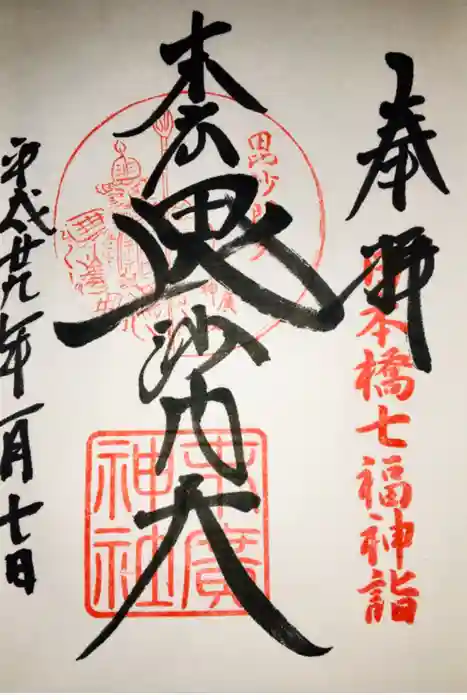 奉拝
日本橋七福神詣
末広
毘沙門天
毘沙門天
末廣
神社
平成廿九年一月七日